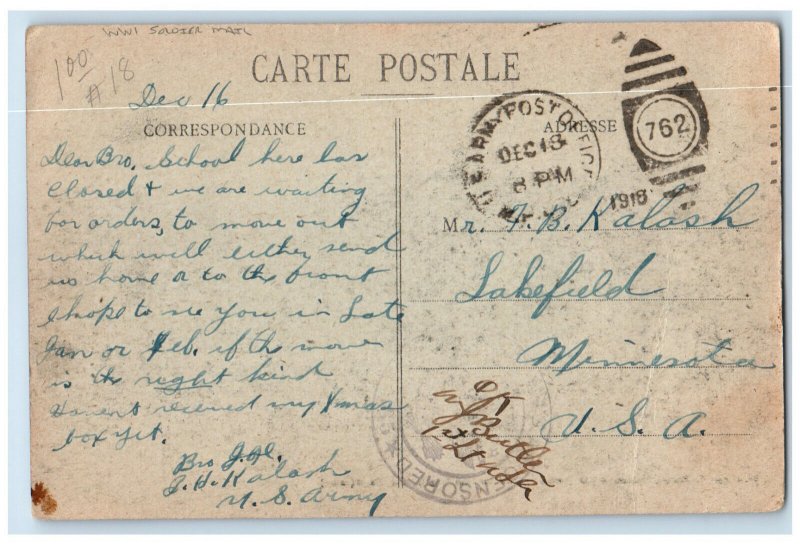 WW1 SOLDIER MAIL
100
#18
CARTE POSTALE
Dec 16
CORRESPONDANCE
ADRESSE
Dear Bro. School here has
closed & we are waiting
for orders, to move out
which will either send
us home or to the front
I hope to see you in Late
Jan or Feb. if the move
is the right kind
Havent received my Xmas
box yet.
Bro J.H.
J. H. Kalash
U.S. Army
U.S. ARMY POST OFFICE
DEC 18
8 PM
1918
762
Mr. F. B. Kalash
Lakefield
Minnesota
U. S. A.
OK
CENSORED